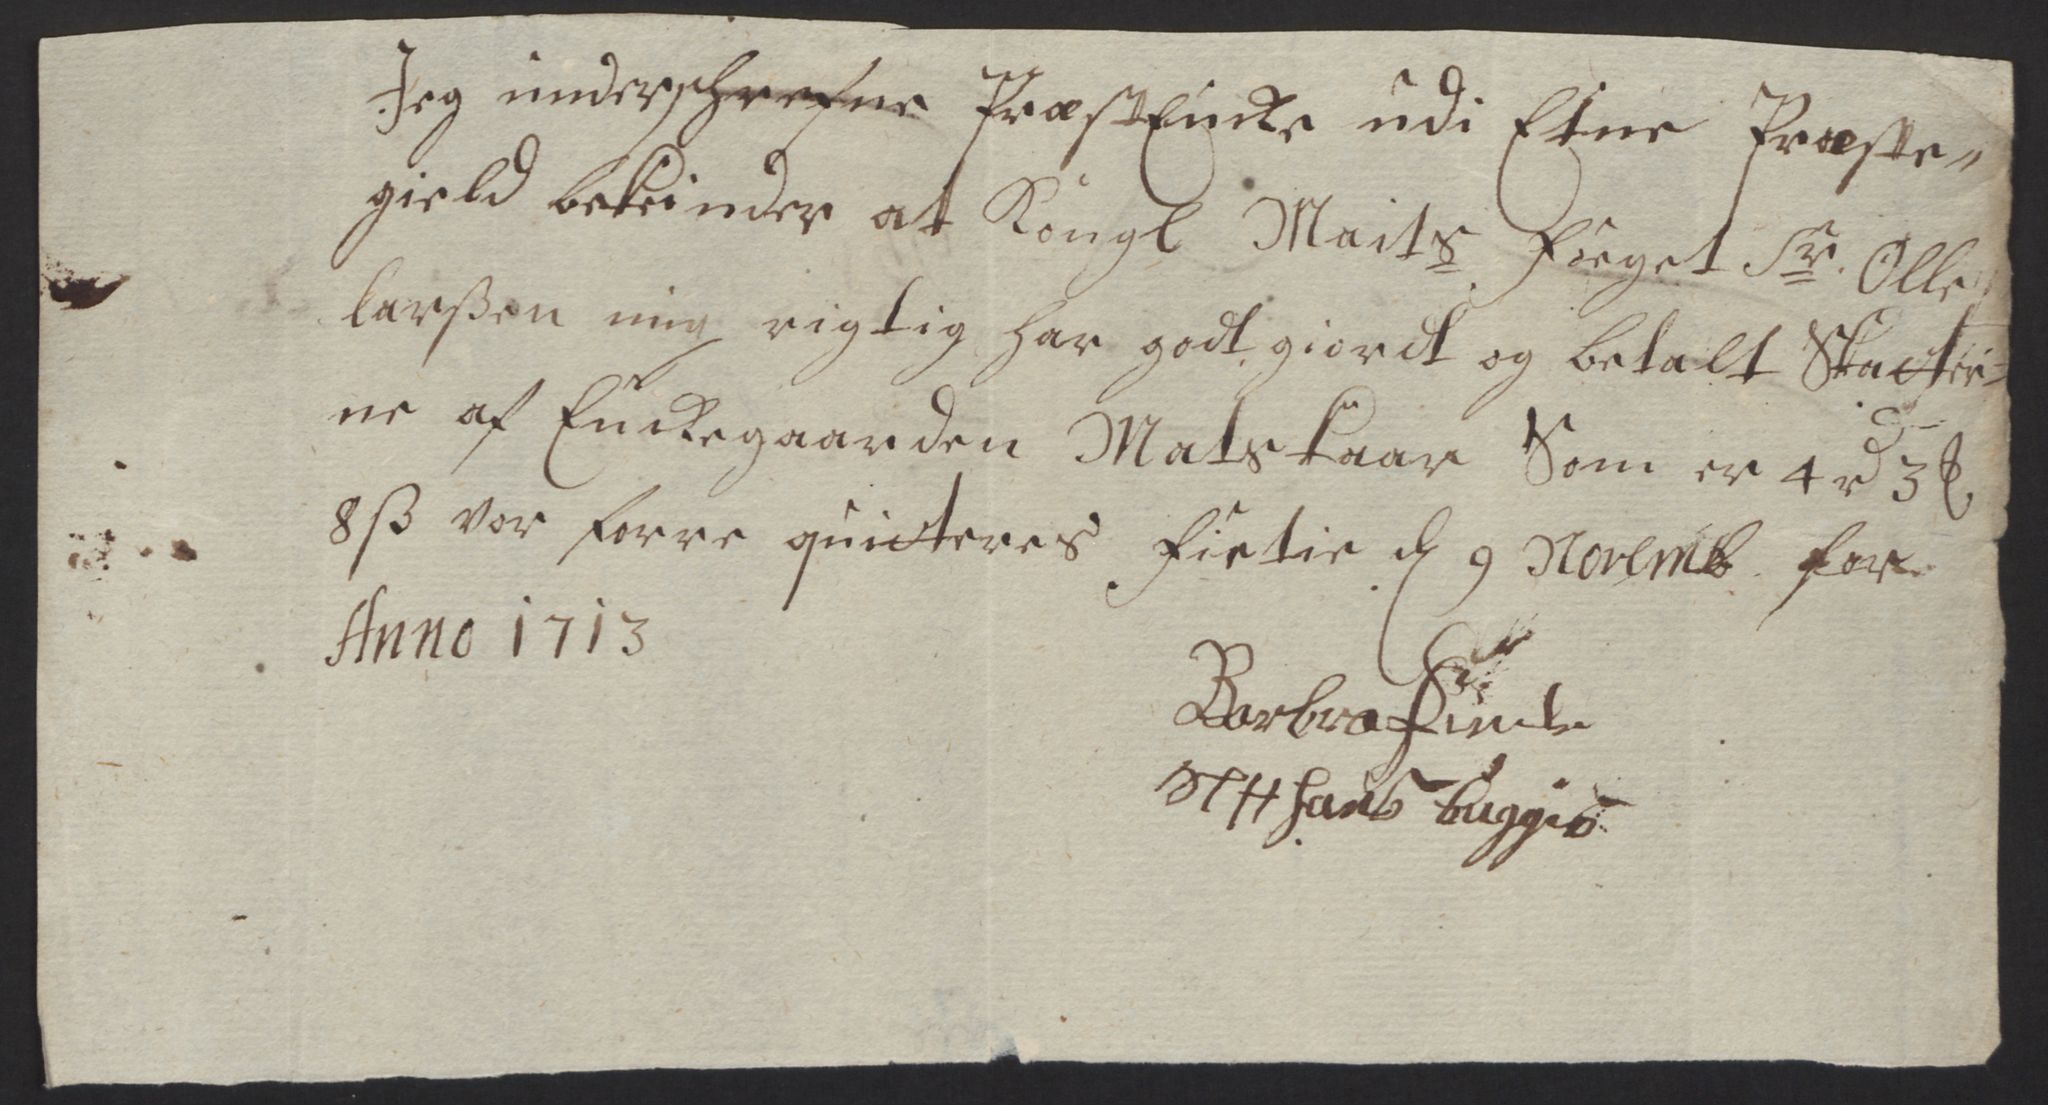 Jeg underschrefne Præst Encke udi Etne Præste„
gield bekiender at Kongl Maits foeget Sr. Olle
Larßen mig rigtig har godt giordt og betalt Skatter=
ne af Enckegaarden Matskaar Som er 4 rd 3 ℔
8 ß vor forre quitteres fietie d 9 Novemb for
Anno 1713
Barbra